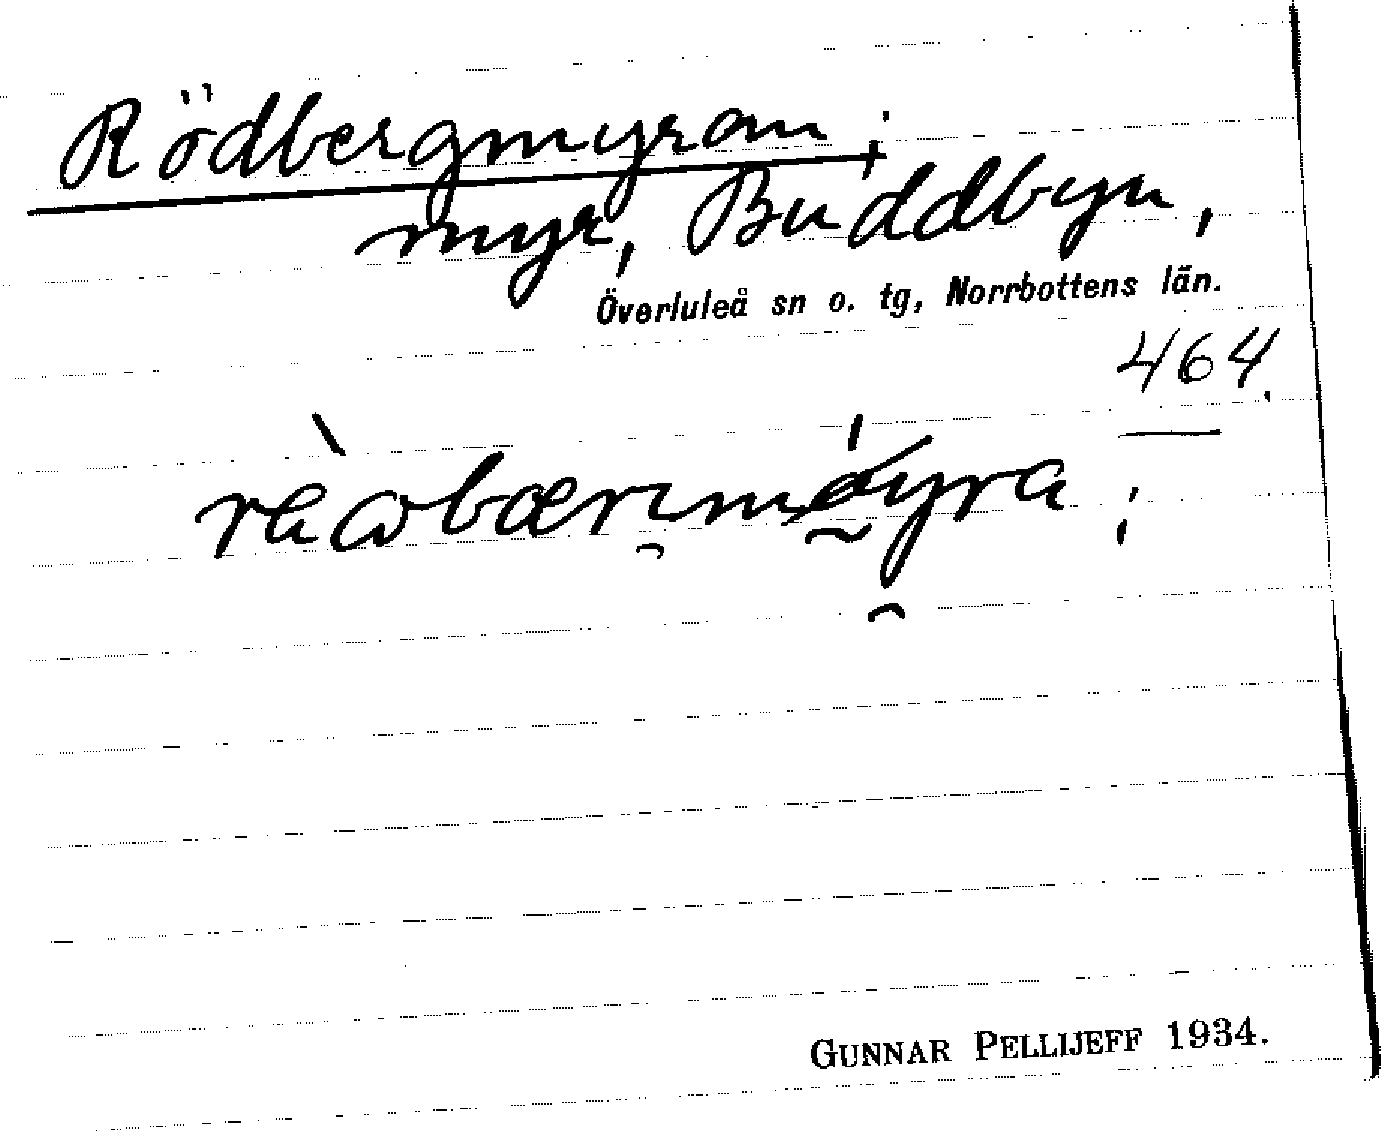 Rödbergmyran;
myr, Buddbyn,
Överluleå sn o. tg, Norrbottens län.
464.
GUNNAR PELLIJEFF 1934.